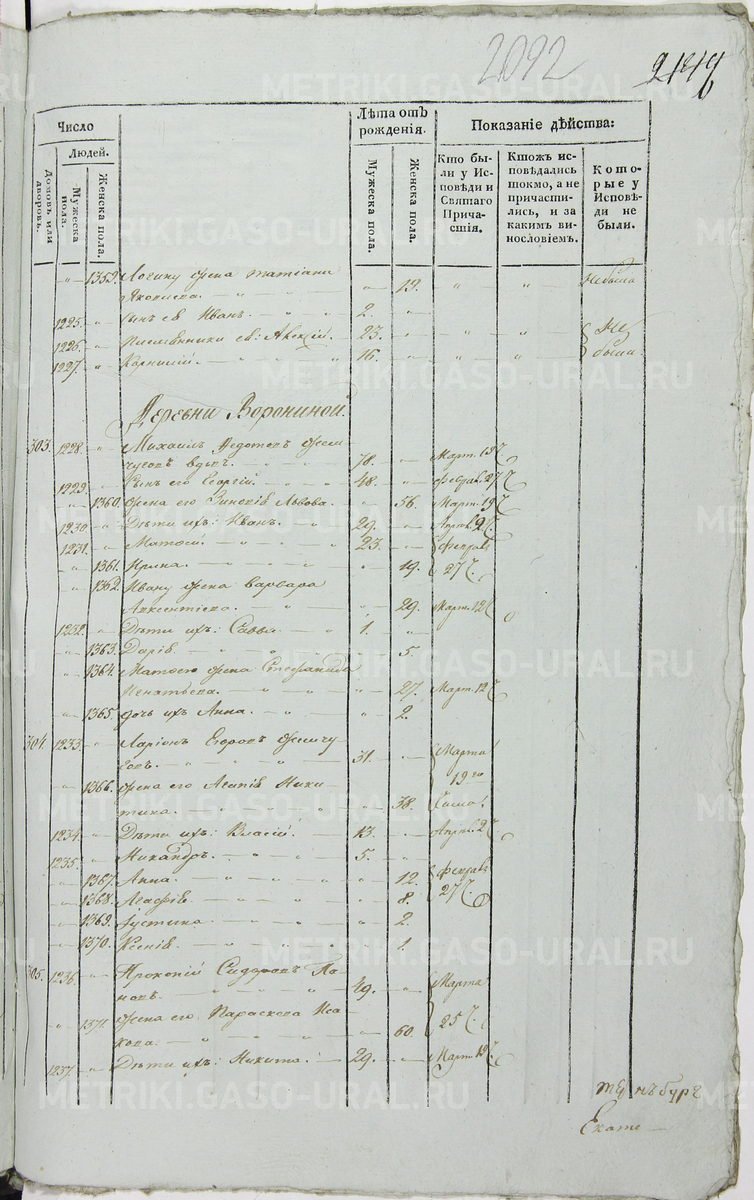 2092
Число
Лѣта отъ рожденія.
Показаніе дѣйства:
Людей.
Домовъ или дворовъ.
Мужеска пола.
Женска пола.
Мужеска пола.
Женска пола.
Кто были у Исповѣди и Святаго Причастія.
Ктожъ исповѣдались токмо, а не причастились, и за какимъ винословіемъ.
Которые у Исповѣди не были.
1359. жена Татіана 19. не была
Яковлева.
1225. сынъ ев Иванъ. 2.
1226. Племянники ев: Алексій. 23. Не
1227. Корнилій. 16. были.
Деревни Ворониной
303. 1228. Михаилъ Федотовъ
вдовъ. 78. Март. 19
1229. Сынъ его Георгій. 48. Феврал. 27
1360. Жена его Зиновія Львова. 56. Март. 19
1230. Дѣти ихъ: Иванъ. 29. Апрѣл. 2
1231. Матѳей. 23. Феврал
1361. Ирина. 19. 27
1362. Ивану жена Варвара
Авксентіева. 29. Март. 12
1232. Дѣти ихъ: Савва. 1.
1363. Дарія. 5.
1364. Матѳею жена Стефанида
Игнатьева. 27. Март. 12
1365. дочь ихъ Анна. 2.
304. 1233. Ларіонъ Егоровъ
31. Марта
19го
1366. жена его Агапія Ники
тина. 38.
1234. Дѣти ихъ: Власій. 13. Апрѣл. 2
1235. Никандръ. 5.
1367. Анна. 12. Феврал
1368. Агафія. 8. 27
1369. Устина. 2.
1370. Ксенія. 1.
305. 1236. Прокопій Сидоровъ По
повъ. 49. Марта
1371. жена его Параскева Иса
кова. 60. 25
1237. Дѣти ихъ: Никита. 29. Март. 19
Екате
METRIKI.GASO-URAL.RU